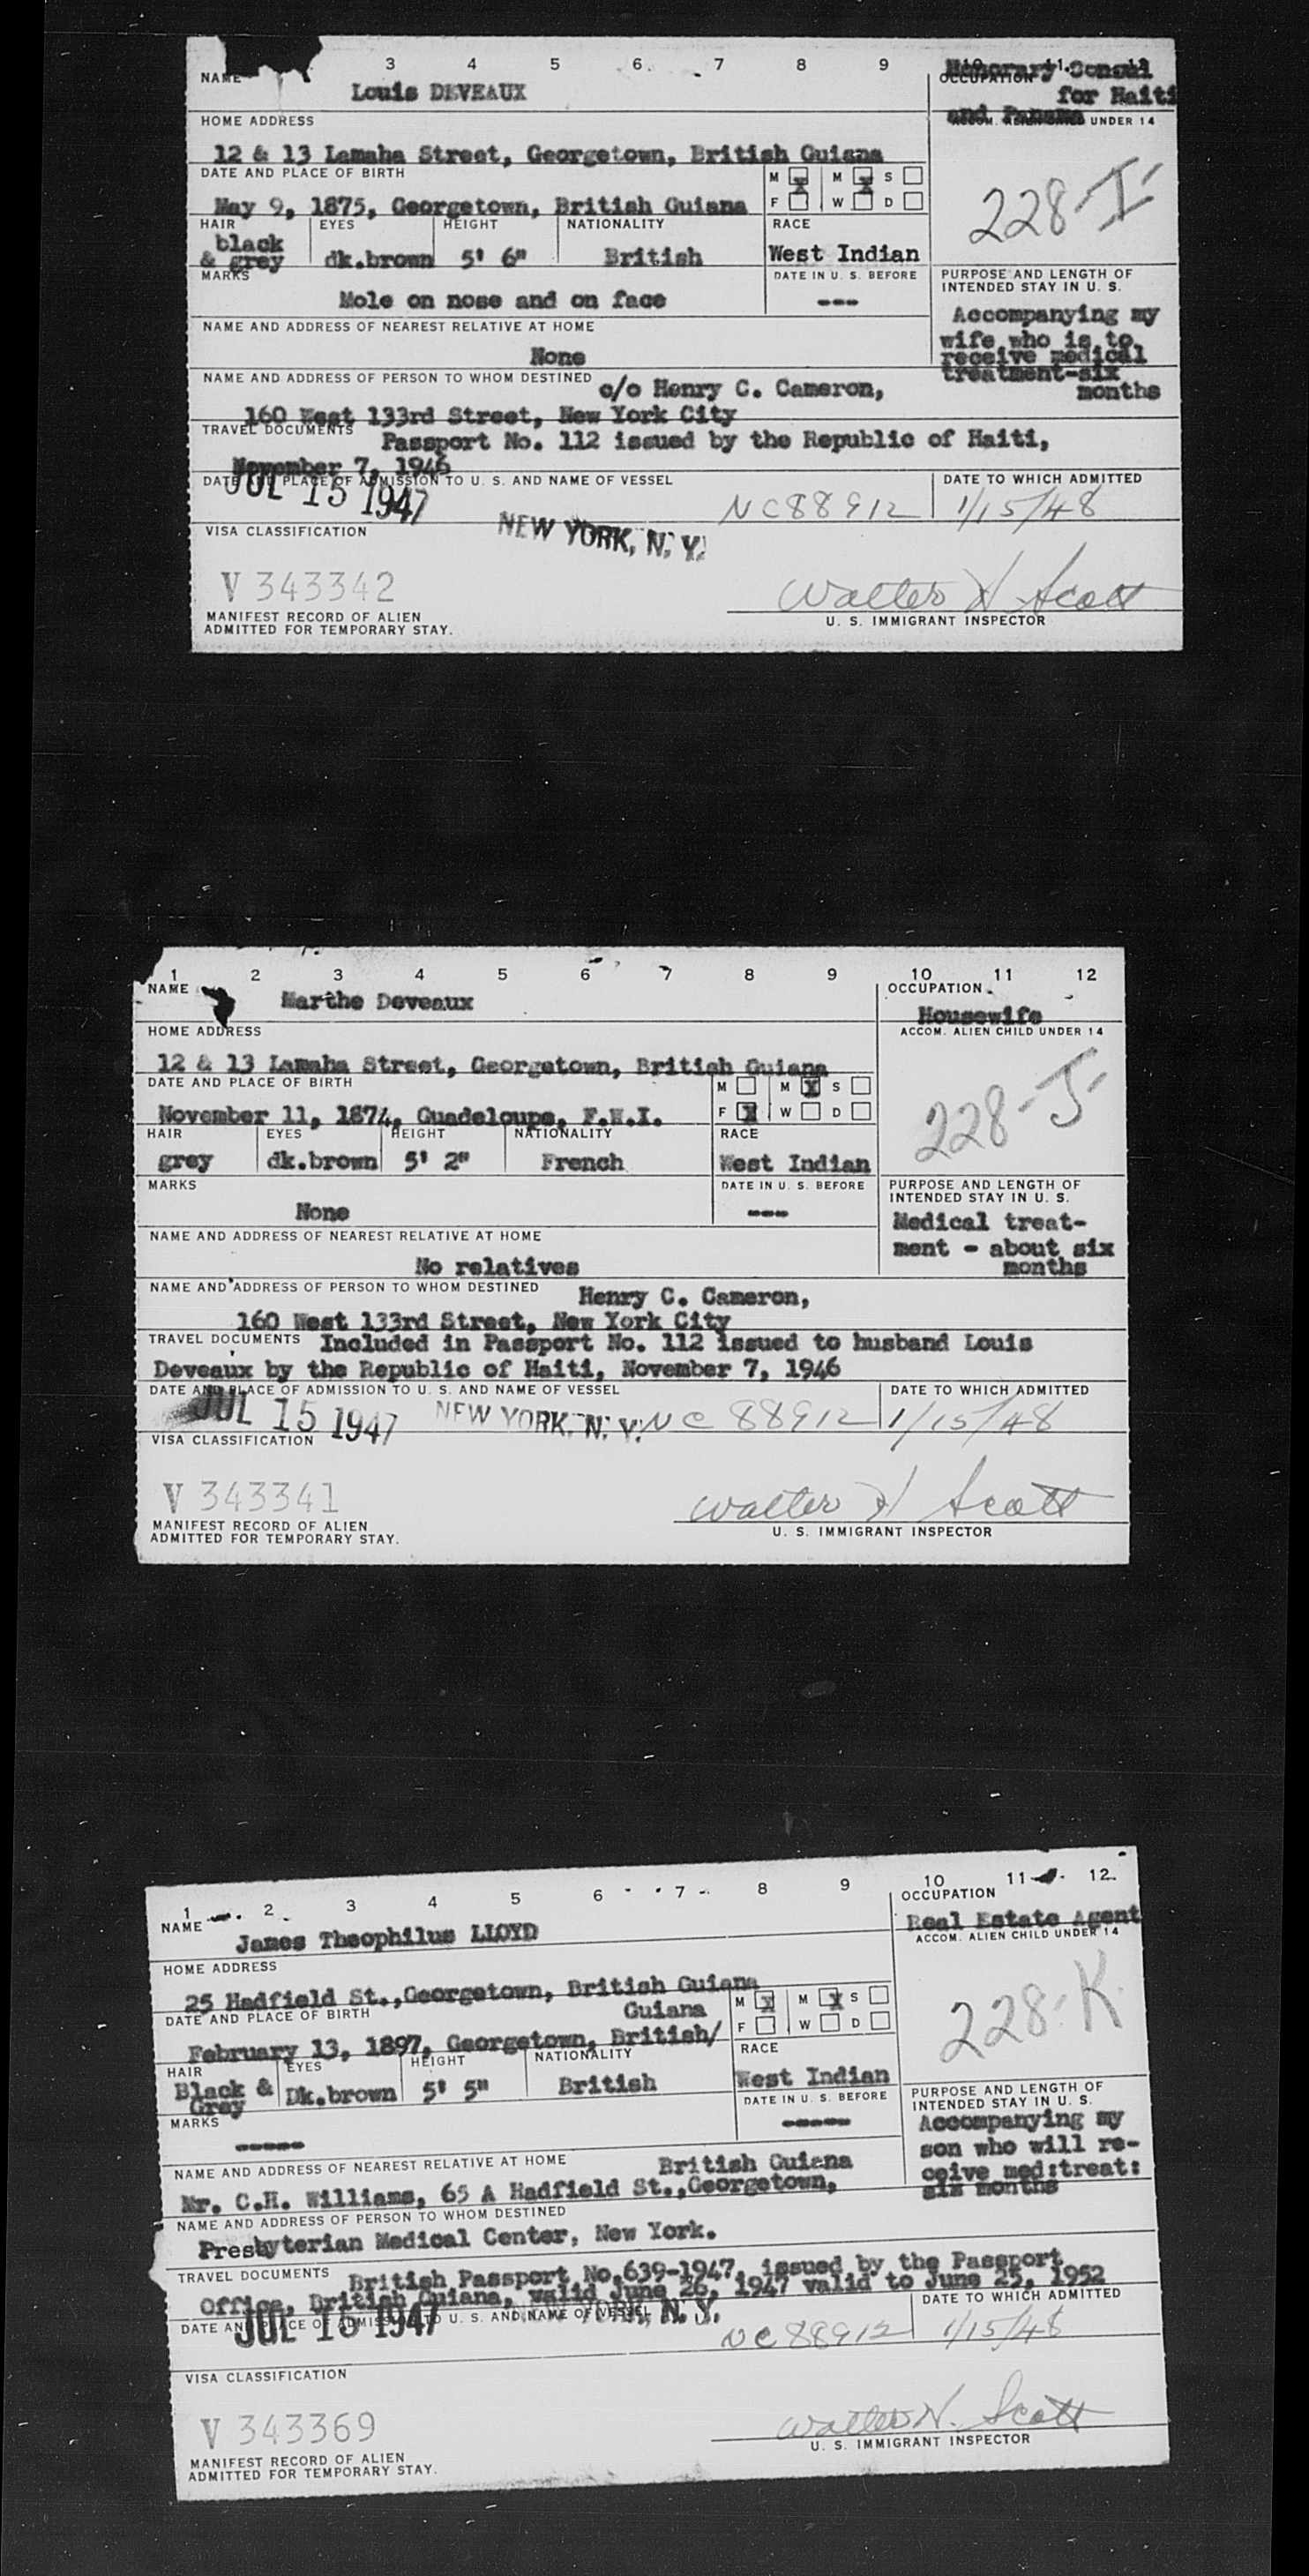 3 4 5 6 7 8 9
NAME
Louis DEVEAUX
OCCUPATION
Honorary Consul
for Haiti
and Panama
UNDER 14
228-I
HOME ADDRESS
12 & 13 Lamaha Street, Georgetown, British Guiana
DATE AND PLACE OF BIRTH
May 9, 1875, Georgetown, British Guiana
M X M X S
F W D
HAIR EYES HEIGHT NATIONALITY RACE
black
& grey dk.brown 5' 6" British West Indian
MARKS
Mole on nose and on face
DATE IN U. S. BEFORE
---
PURPOSE AND LENGTH OF
INTENDED STAY IN U. S.
Accompanying my
wife who is to
receive medical
treatment-six
months
NAME AND ADDRESS OF NEAREST RELATIVE AT HOME
None
NAME AND ADDRESS OF PERSON TO WHOM DESTINED
c/o Henry C. Cameron,
160 West 133rd Street, New York City
TRAVEL DOCUMENTS
Passport No. 112 issued by the Republic of Haiti,
November 7, 1946
DATE AND PLACE OF ADMISSION TO U. S. AND NAME OF VESSEL
JUL 15 1947
NEW YORK, N. Y.
NC88912
DATE TO WHICH ADMITTED
1/15/48
VISA CLASSIFICATION
V 343342
Walter H Scott
U. S. IMMIGRANT INSPECTOR
MANIFEST RECORD OF ALIEN
ADMITTED FOR TEMPORARY STAY.
1 2 3 4 5 6 7 8 9 10 11 12
NAME
Marthe Deveaux
OCCUPATION
Housewife
ACCOM. ALIEN CHILD UNDER 14
228-J
HOME ADDRESS
12 & 13 Lamaha Street, Georgetown, British Guiana
DATE AND PLACE OF BIRTH
November 11, 1874, Guadeloupe, F.W.I.
M M X S
F X W D
HAIR EYES HEIGHT NATIONALITY RACE
grey dk.brown 5' 2" French West Indian
MARKS
None
DATE IN U. S. BEFORE
---
PURPOSE AND LENGTH OF
INTENDED STAY IN U. S.
Medical treat-
ment - about six
months
NAME AND ADDRESS OF NEAREST RELATIVE AT HOME
No relatives
NAME AND ADDRESS OF PERSON TO WHOM DESTINED
Henry C. Cameron,
160 West 133rd Street, New York City
TRAVEL DOCUMENTS Included in Passport No. 112 issued to husband Louis
Deveaux by the Republic of Haiti, November 7, 1946
DATE AND PLACE OF ADMISSION TO U. S. AND NAME OF VESSEL
JUL 15 1947 NEW YORK, N. Y. NC 88912
DATE TO WHICH ADMITTED
1/15/48
VISA CLASSIFICATION
V 343341
Walter H Scott
U. S. IMMIGRANT INSPECTOR
MANIFEST RECORD OF ALIEN
ADMITTED FOR TEMPORARY STAY.
1 2 3 4 5 6 7 8 9 10 11 12
NAME
James Theophilus LLOYD
OCCUPATION
Real Estate Agent
ACCOM. ALIEN CHILD UNDER 14
228-K
HOME ADDRESS
25 Hadfield St.,Georgetown, British Guiana
DATE AND PLACE OF BIRTH
Guiana
February 13, 1897, Georgetown, British/
M X M X S
F W D
HAIR EYES HEIGHT NATIONALITY RACE
Black &
Grey Dk.brown 5' 5" British West Indian
MARKS
-----
DATE IN U. S. BEFORE
-----
PURPOSE AND LENGTH OF
INTENDED STAY IN U. S.
Accompanying my
son who will re-
ceive med:treat:
six months
NAME AND ADDRESS OF NEAREST RELATIVE AT HOME
British Guiana
Mr. C.H. Williams, 65 A Hadfield St.,Georgetown,
NAME AND ADDRESS OF PERSON TO WHOM DESTINED
Presbyterian Medical Center, New York.
TRAVEL DOCUMENTS British Passport No.639-1947, issued by the Passport
Office, British Guiana, valid June 26, 1947 valid to June 25, 1952
DATE AND PLACE OF ADMISSION TO U. S. AND NAME OF VESSEL
JUL 15 1947 YORK, N. Y.
NC88912
DATE TO WHICH ADMITTED
1/15/48
VISA CLASSIFICATION
V 343369
Walter H. Scott
U. S. IMMIGRANT INSPECTOR
MANIFEST RECORD OF ALIEN
ADMITTED FOR TEMPORARY STAY.